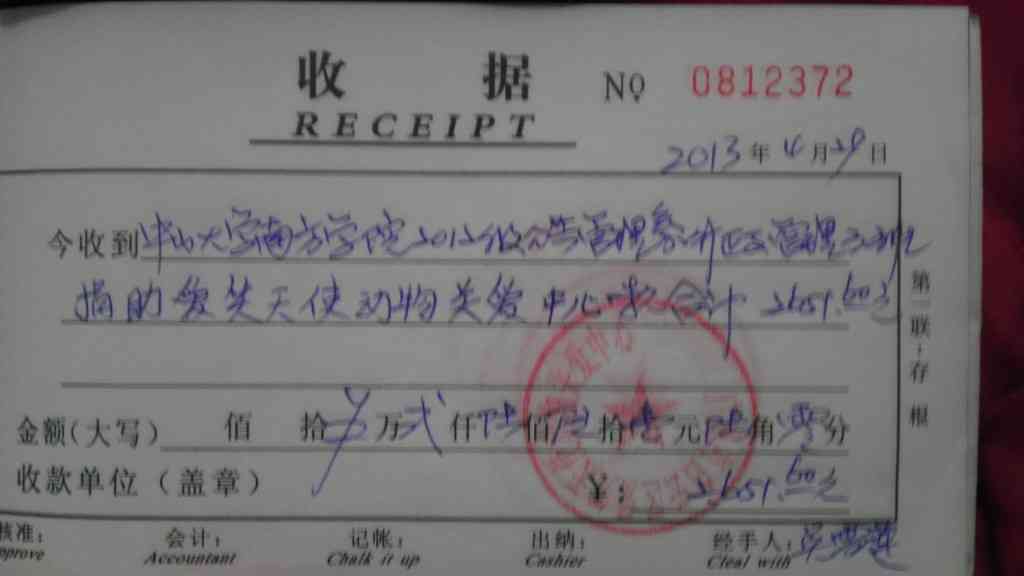 收 据
RECEIPT
NO 0812372
2013年4月29日
今收到中山大学南方学院2012级公共管理系行政管理
捐助爱使天使动物关爱中心 合计 2651.60元
第二联:存根
金额(大写) 佰 拾 万 贰仟陆佰伍拾壹元陆角零分
收款单位(盖章) ¥: 2651.60元
核准: 会计: 记帐: 出纳: 经手人:
pprove Accountant Chalk it up Cashier Cleal with